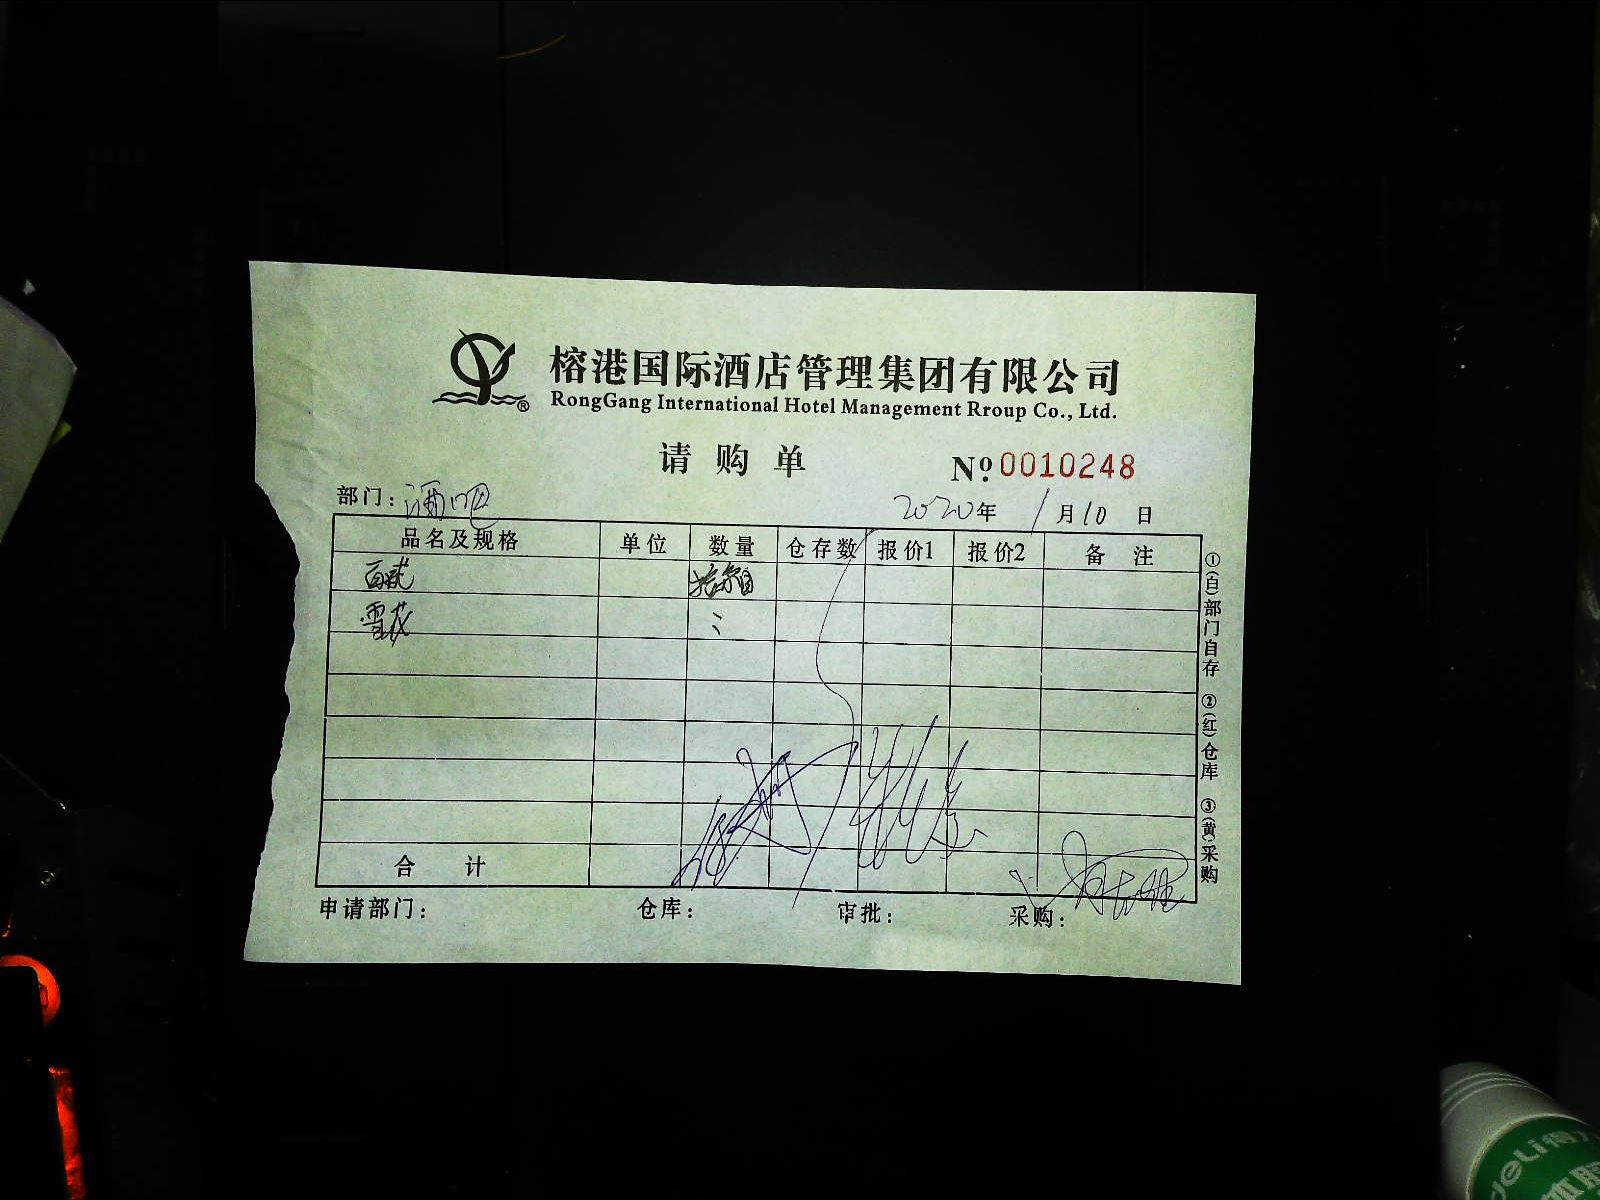 榕港国际酒店管理集团有限公司
RongGang International Hotel Management Rroup Co., Ltd.
请购单
No.0010248
部门：酒吧
2020年1月10日
品名及规格 单位 数量 仓存数 报价1 报价2 备注
百威
雪花
合计
申请部门： 仓库： 审批： 采购：
①(白)部门自存 ②(红)仓库 ③(黄)采购
deli得力